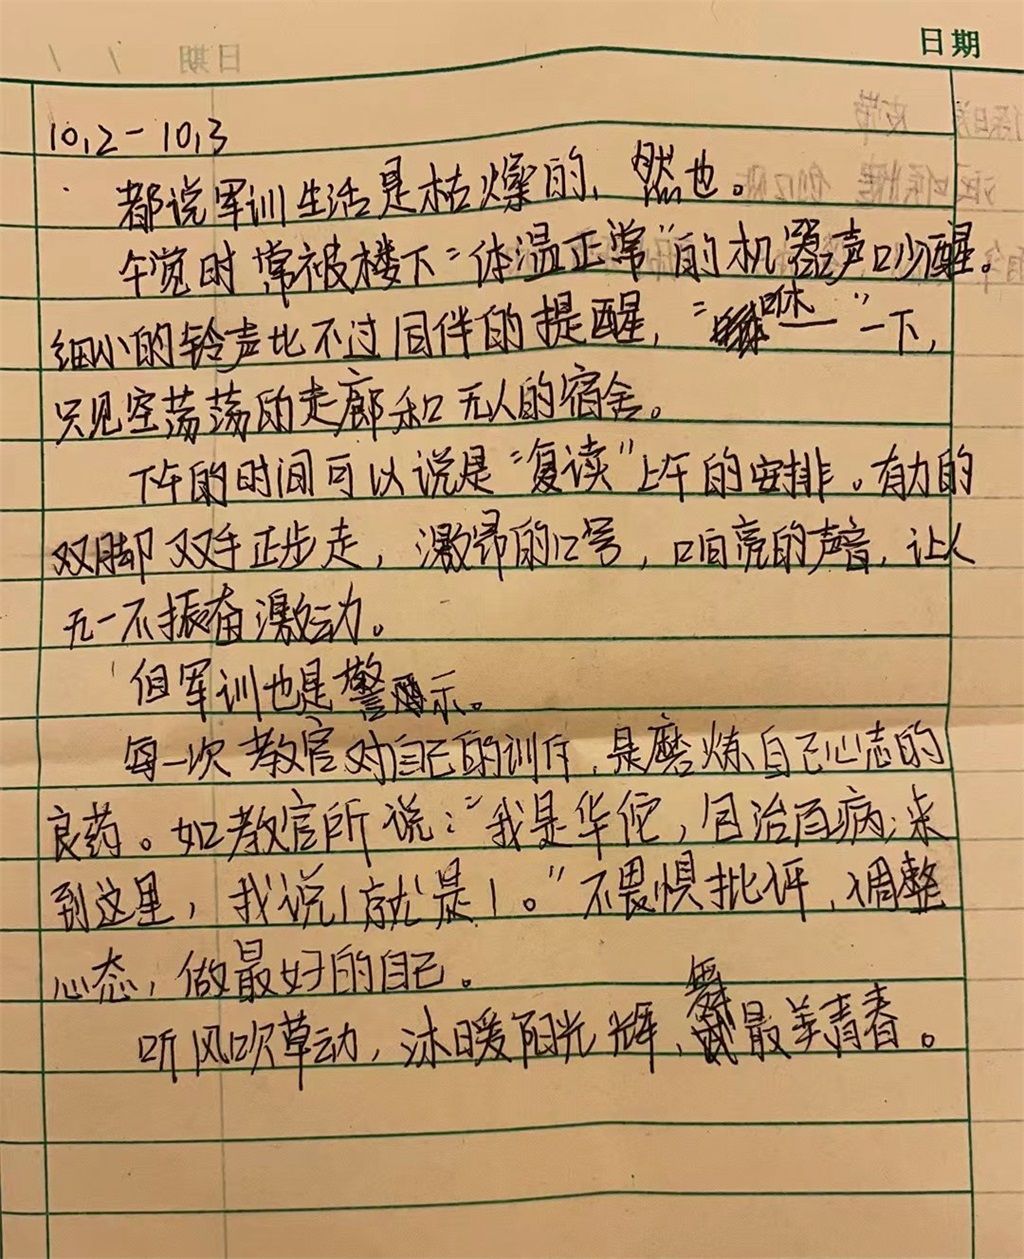 日期
10,2-10,3
都说军训生活是枯燥的，然也。
午觉时常被楼下“体温正常”的机器声吵醒。
细小的铃声比不过同伴的提醒，“咻——”一下，
只见空荡荡的走廊和无人的宿舍。
下午的时间可以说是“复读”上午的安排。有力的
双脚双手正步走，激昂的口号，响亮的声音，让人
无一不振奋激动。
但军训也是警示。
每一次教官对自己的训斥，是磨炼自己心志的
良药。如教官所说：“我是华佗，包治百病；来
到这里，我说1就是1。”不畏惧批评，调整
心态，做最好的自己。
听风吹草动，沐暖阳光辉，舞最美青春。